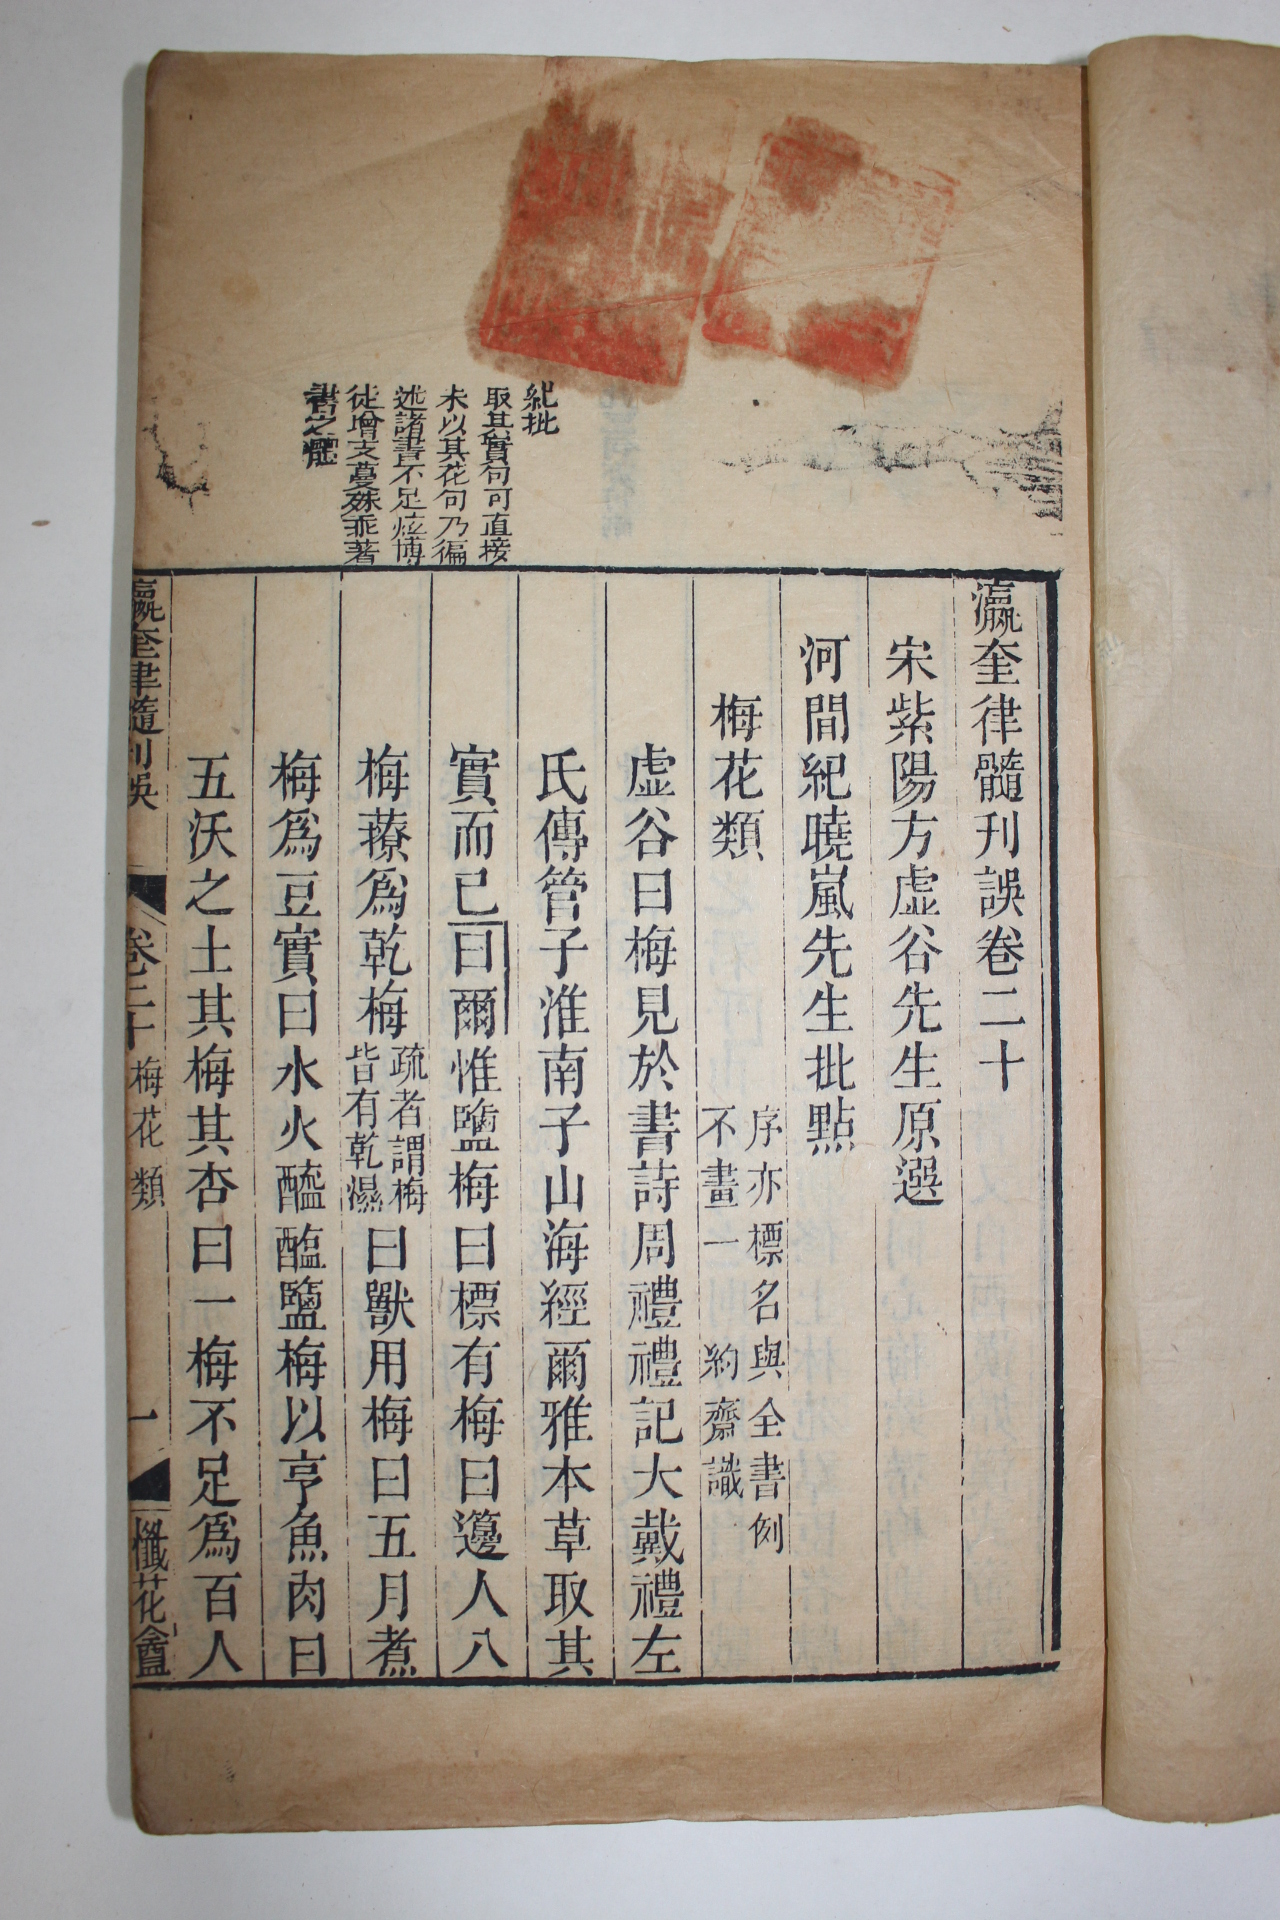 瀛奎律髓刊誤卷二十
宋紫陽方虛谷先生原選
河間紀曉嵐先生批點
梅花類
序亦標名與全書例
不畫一 約齋識
虛谷曰梅見於書詩周禮禮記大戴禮左
氏傳管子淮南子山海經爾雅本草取其
實而已曰爾惟鹽梅曰標有梅曰籩人八
梅䕩為乾梅
疏者謂梅
皆有乾濕
曰獸用梅曰五月煮
梅爲豆實曰水火醯醢鹽梅以亨魚肉曰
五沃之土其梅其杏曰一梅不足爲百人
紀批
取其實句可直接
未以其花句乃徧
述諸書不足炫博
徒增支蔓殊乖著
書之體
瀛奎律髓刊誤
卷二十
梅花類
一
懺花盦